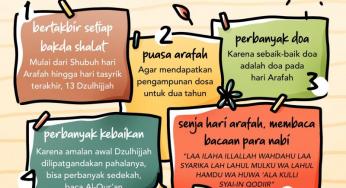 1
bertakbir setiap
bakda shalat
Mulai dari Shubuh hari
Arafah hingga hari tasyrik
terakhir, 13 Dzulhijjah
2
puasa arafah
Agar mendapatkan
pengampunan dosa
untuk dua tahun
perbanyak doa
Karena sebaik-baik doa
adalah doa pada
hari Arafah
3
perbanyak kebaikan
Karena amalan awal Dzulhijjah
dilipatgandakan pahalanya,
bisa perbanyak sedekah,
baca Al-Qur'an
senja hari arafah, membaca
bacaan para nabi
"LAA ILAHA ILALLAH WAHDAHU LAA
SYARIKA LAH LAHUL MULKU WA LAHUL
HAMDU WA HUWA 'ALA KULLI
SYAI-IN QODIIR"